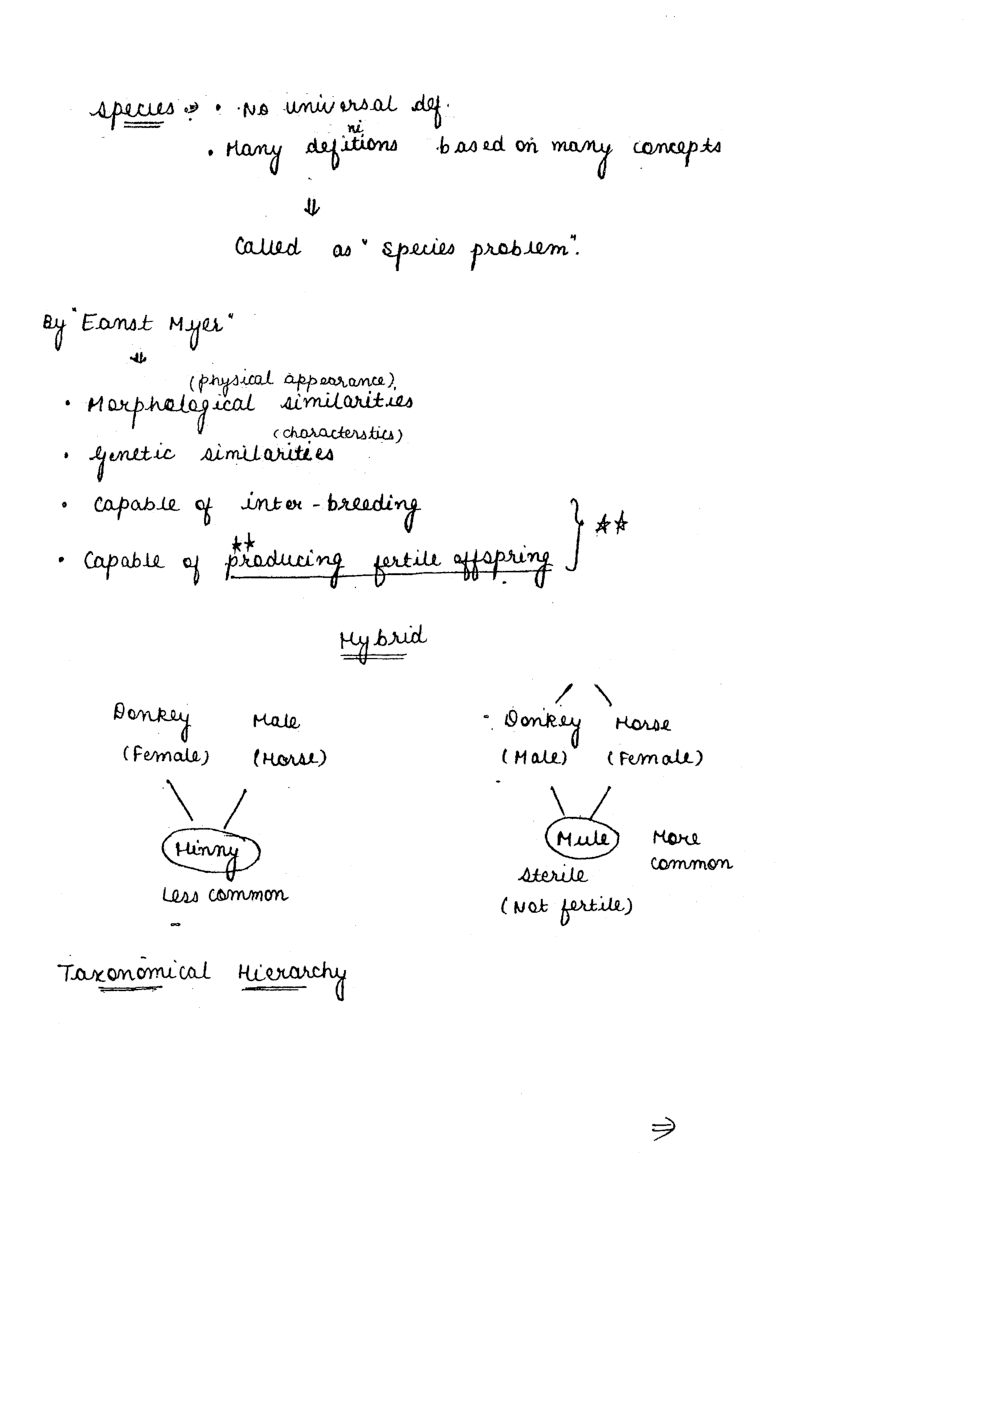 Species ⇒ • No universal def.
• Many definitions based on many concepts
⇓
Called as "species problem".
By "Eanst Myer"
⇓
(physical appearance)
• Morphological similarities
(characterstics)
• Genetic similarities
• Capable of inter-breeding
• Capable of producing fertile offspring } ★★
★★
Hybrid
Donkey Male
(Female) (Horse)
Hinny
Less common
Donkey Horse
(Male) (Female)
Mule More
common
Sterile
(Not fertile)
Taxonomical Hierarchy
⇒